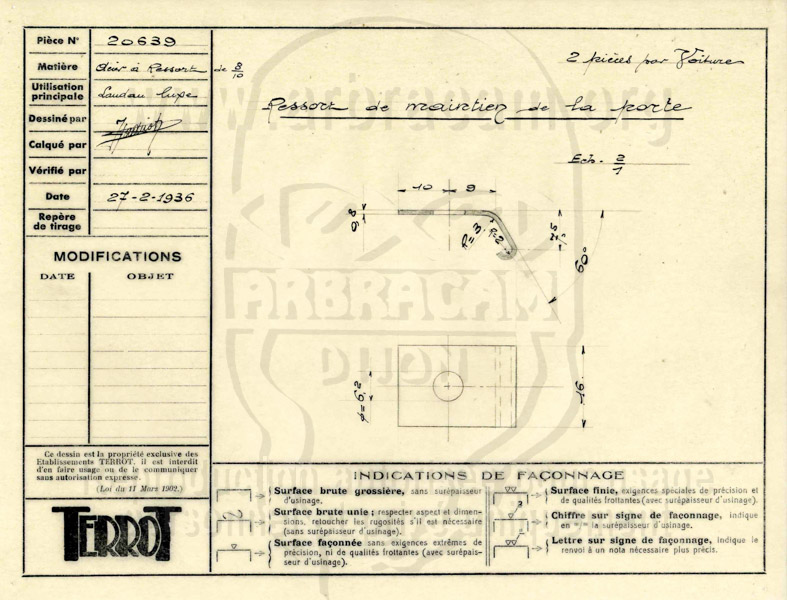 Pièce N° 20639
Matière Acier à Ressort de 8/10
Utilisation principale Landau luxe
Dessiné par
Calqué par
Vérifié par
Date 27-2-1936
Repère de tirage
MODIFICATIONS
DATE OBJET
Ce dessin est la propriété exclusive des
Etablissements TERROT. il est interdit
d'en faire usage ou de le communiquer
sans autorisation expresse.
(Loi du 11 Mars 1902.)
TERROT
2 pièces par Voiture
Ressort de maintien de la porte
Ech. 2/1
10 9
0,8
R=3
R=2
60°
16
INDICATIONS DE FAÇONNAGE
Surface brute grossière, sans surépaisseur
d'usinage.
Surface brute unie; respecter aspect et dimen-
sions, retoucher les rugosités s'il est nécessaire
(sans surépaisseur d'usinage).
Surface façonnée sans exigences extrêmes de
précision, ni de qualités frottantes (avec surépais-
seur d'usinage).
Surface finie, exigences spéciales de précision et
de qualités frottantes (avec surépaisseur d'usinage).
Chiffre sur signe de façonnage, indique
en m/m la surépaisseur d'usinage.
Lettre sur signe de façonnage, indique le
renvoi à un nota nécessaire plus précis.
www.arbracam.org
ARBRACAM
DIJON